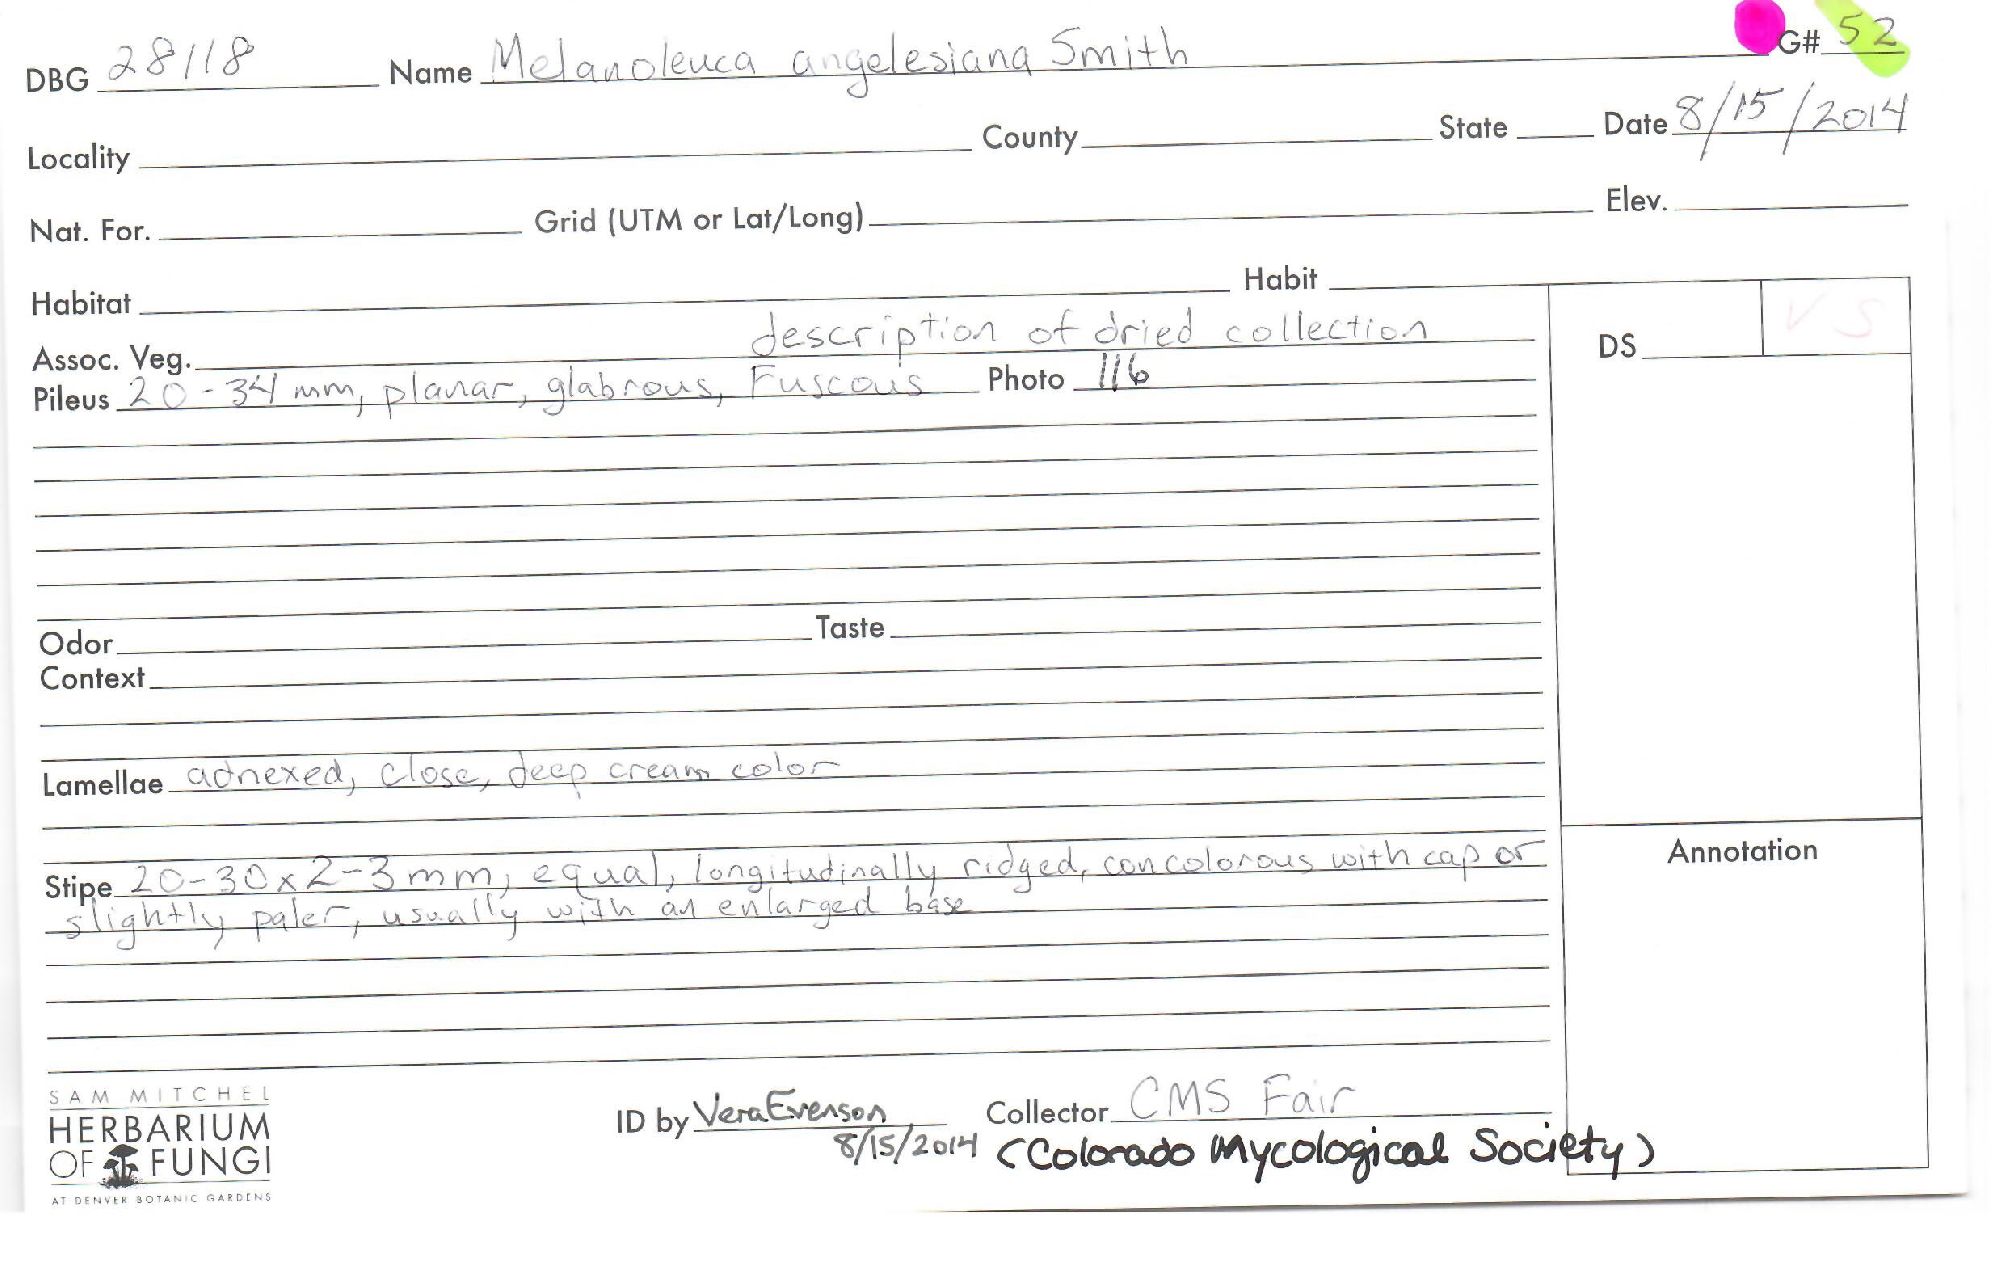 DBG 28118 Name Melanoleuca angelesiana Smith G# 52
Locality County State Date 8/15/2014
Nat. For. Grid (UTM or Lat/Long) Elev.
Habitat Habit
Assoc. Veg. description of dried collection DS VS
Pileus 20-34 mm, planar, glabrous, Fuscous Photo 116
Odor Taste
Context
Lamellae adnexed, close, deep cream color
Annotation
Stipe 20-30 x 2-3 mm, equal, longitudinally ridged, concolorous with cap or
slightly paler, usually with an enlarged base
SAM MITCHEL
HERBARIUM
OF FUNGI
AT DENVER BOTANIC GARDENS
ID by Vera Evenson Collector CMS Fair
8/15/2014 (Colorado Mycological Society)